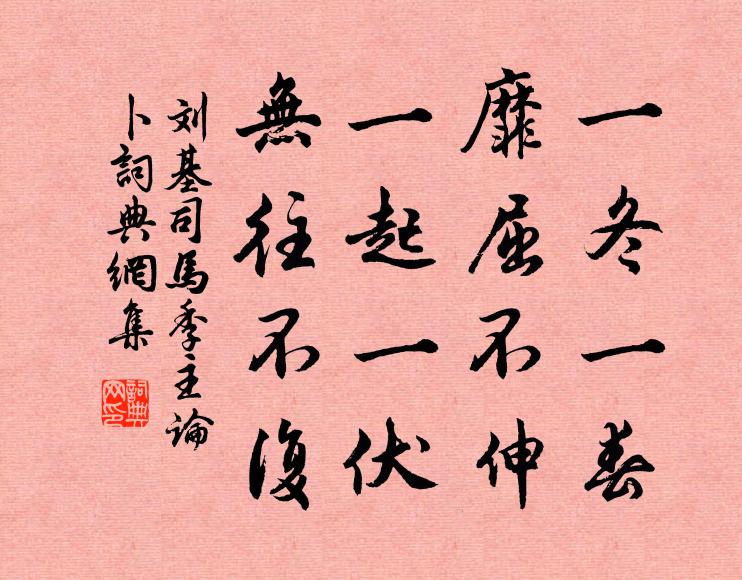 一冬一春
靡屈不伸
一起一伏
無往不復
刘基司馬季主論
卜詞典網集
詞典網印